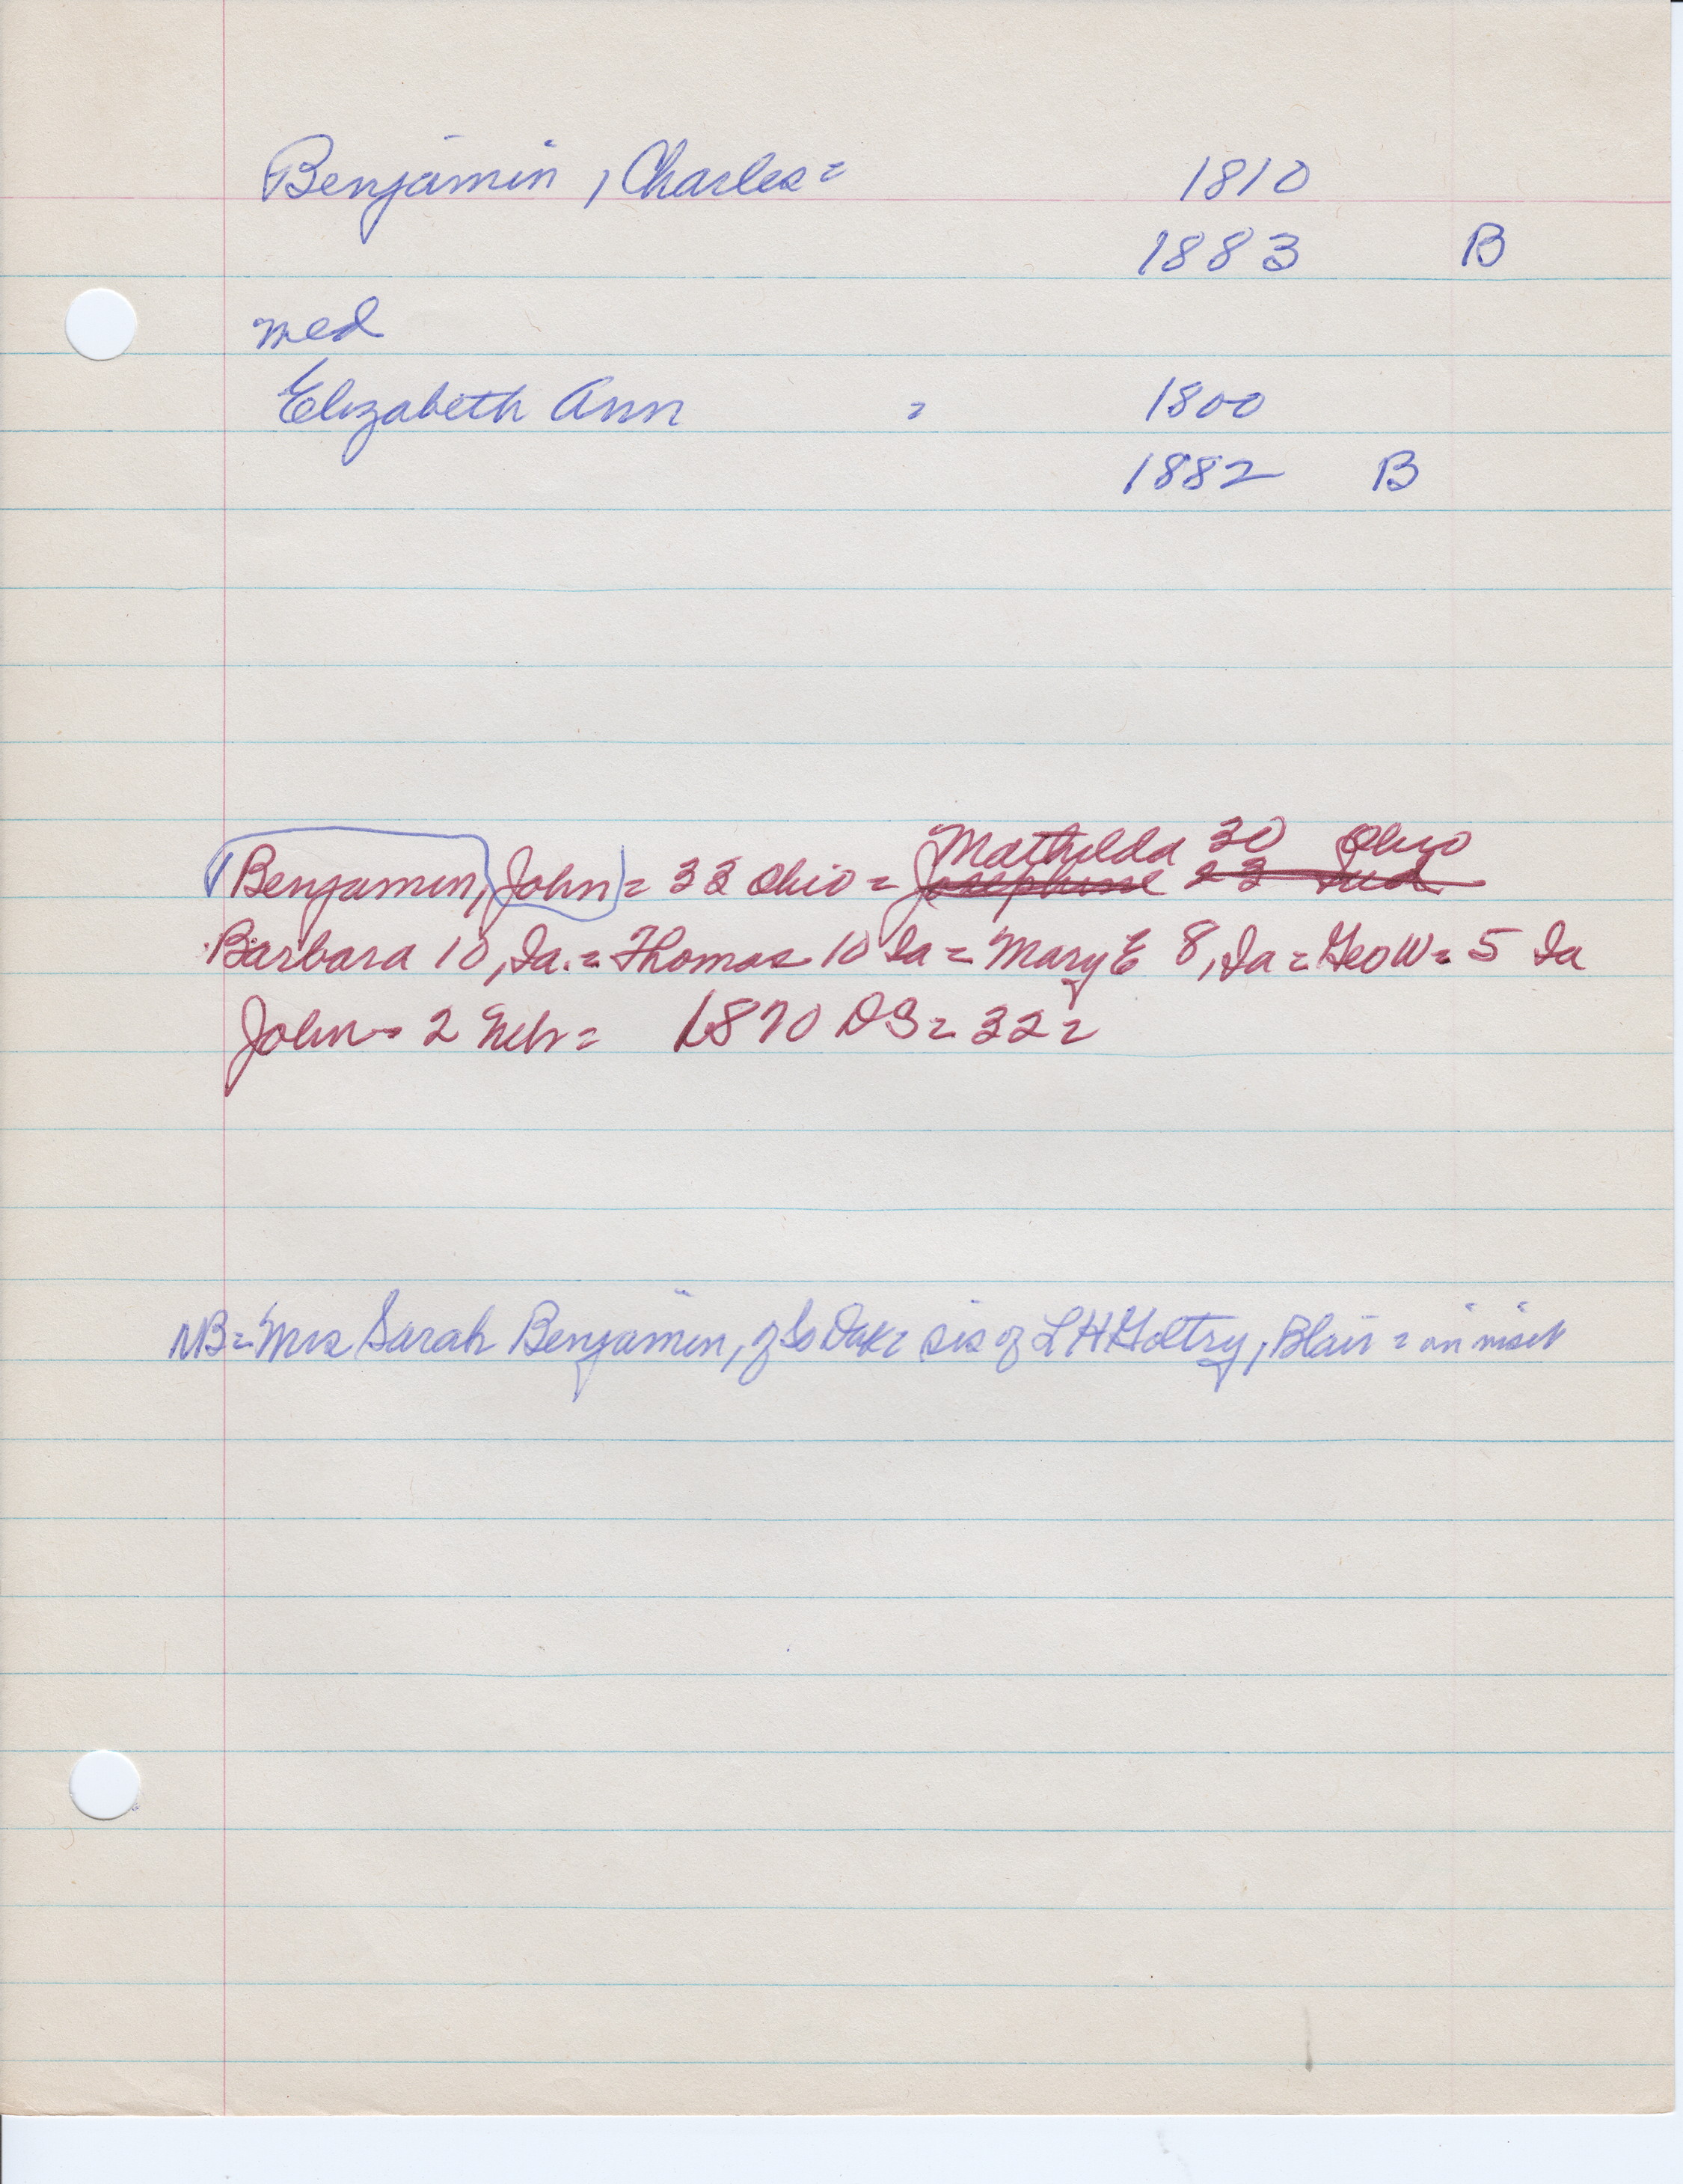 Benjamin, Charles = 1810
1883 B
med
Elizabeth Ann = 1800
1882 B
Mathilda 30 Ohio
Benjamin, John = 33 Ohio = Josephine 23 Ind
Barbara 10, Ia. = Thomas 10 Ia = Mary E 8, Ia = Geo W = 5 Ia
John = 2 Neb = 1870 DS = 32 =
NB = Mrs Sarah Benjamin, of So Dak = sis of L H Goltry, Blair = on visit